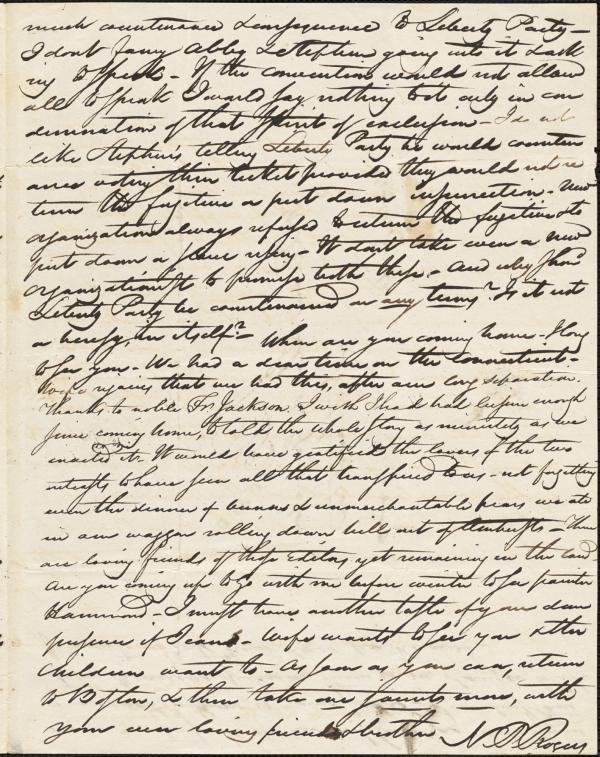 much countenance & consequence to Liberty Party —
I dont fancy Abby & Stephen going into it & ask
ing to speak — If the convention would not allow
all to speak I would say nothing to it only in con
demnation of that spirit of exclusion — I do not
like Stephen's telling Liberty Party he would counten
ance voting their ticket provided they would not re
turn the fugitive or put down insurrection — New
organization always refused to return the fugitive & to
put down a slave rising — It dont take even a new
organizationist to promise both these — And why shd
Liberty Party be countenanced on any terms? Is it not
a heresy, in itself? — When are you coming home — I long
to see you — We had a dear time on the Connecticut —
that we had this, after our long separation.
Thanks to noble Fr. Jackson. I wish I had had leisure enough
since coming home, to told the whole story as minutely as we
enacted it. It would have gratified the lovers of the two
to have seen all that transpired to us — not forgetting
even the dinner of buns & unmerchantable pears we ate
in our waggon rolling down hill out of Amherst — There
are loving friends of those Editors, yet remaining in the land
Are you coming up to go with me before winter to see painter
I must have another taste of your dear
presence if I can — Wife wants to see you & the
children want to — As soon as you can, return
to Boston, & then take one jaunt more, with
your ever loving friend & brother N. P. Rogers